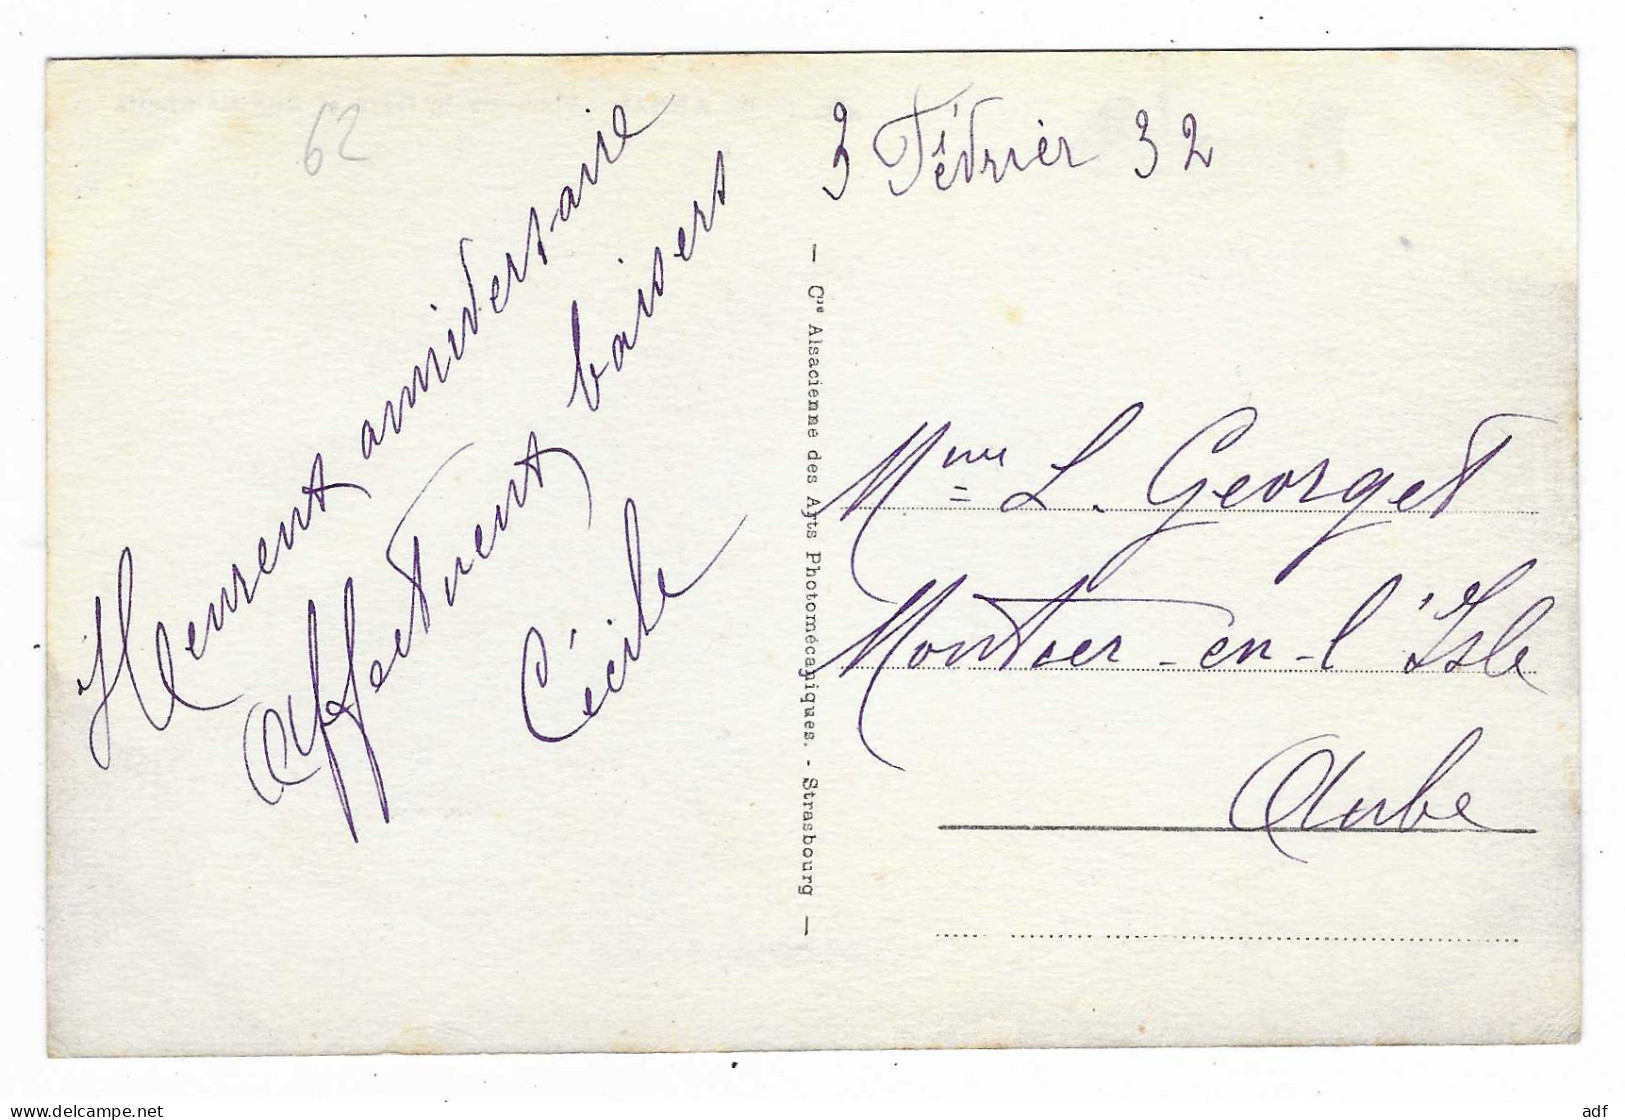 62
Heurent anniversaire
Affectuent baisers
Cécile
3 Février 32
— Cie Alsacienne des Arts Photomécaniques. - Strasbourg —
Mme L. Georget
Montier-en-l'Isle
Aube
www.delcampe.net
adf